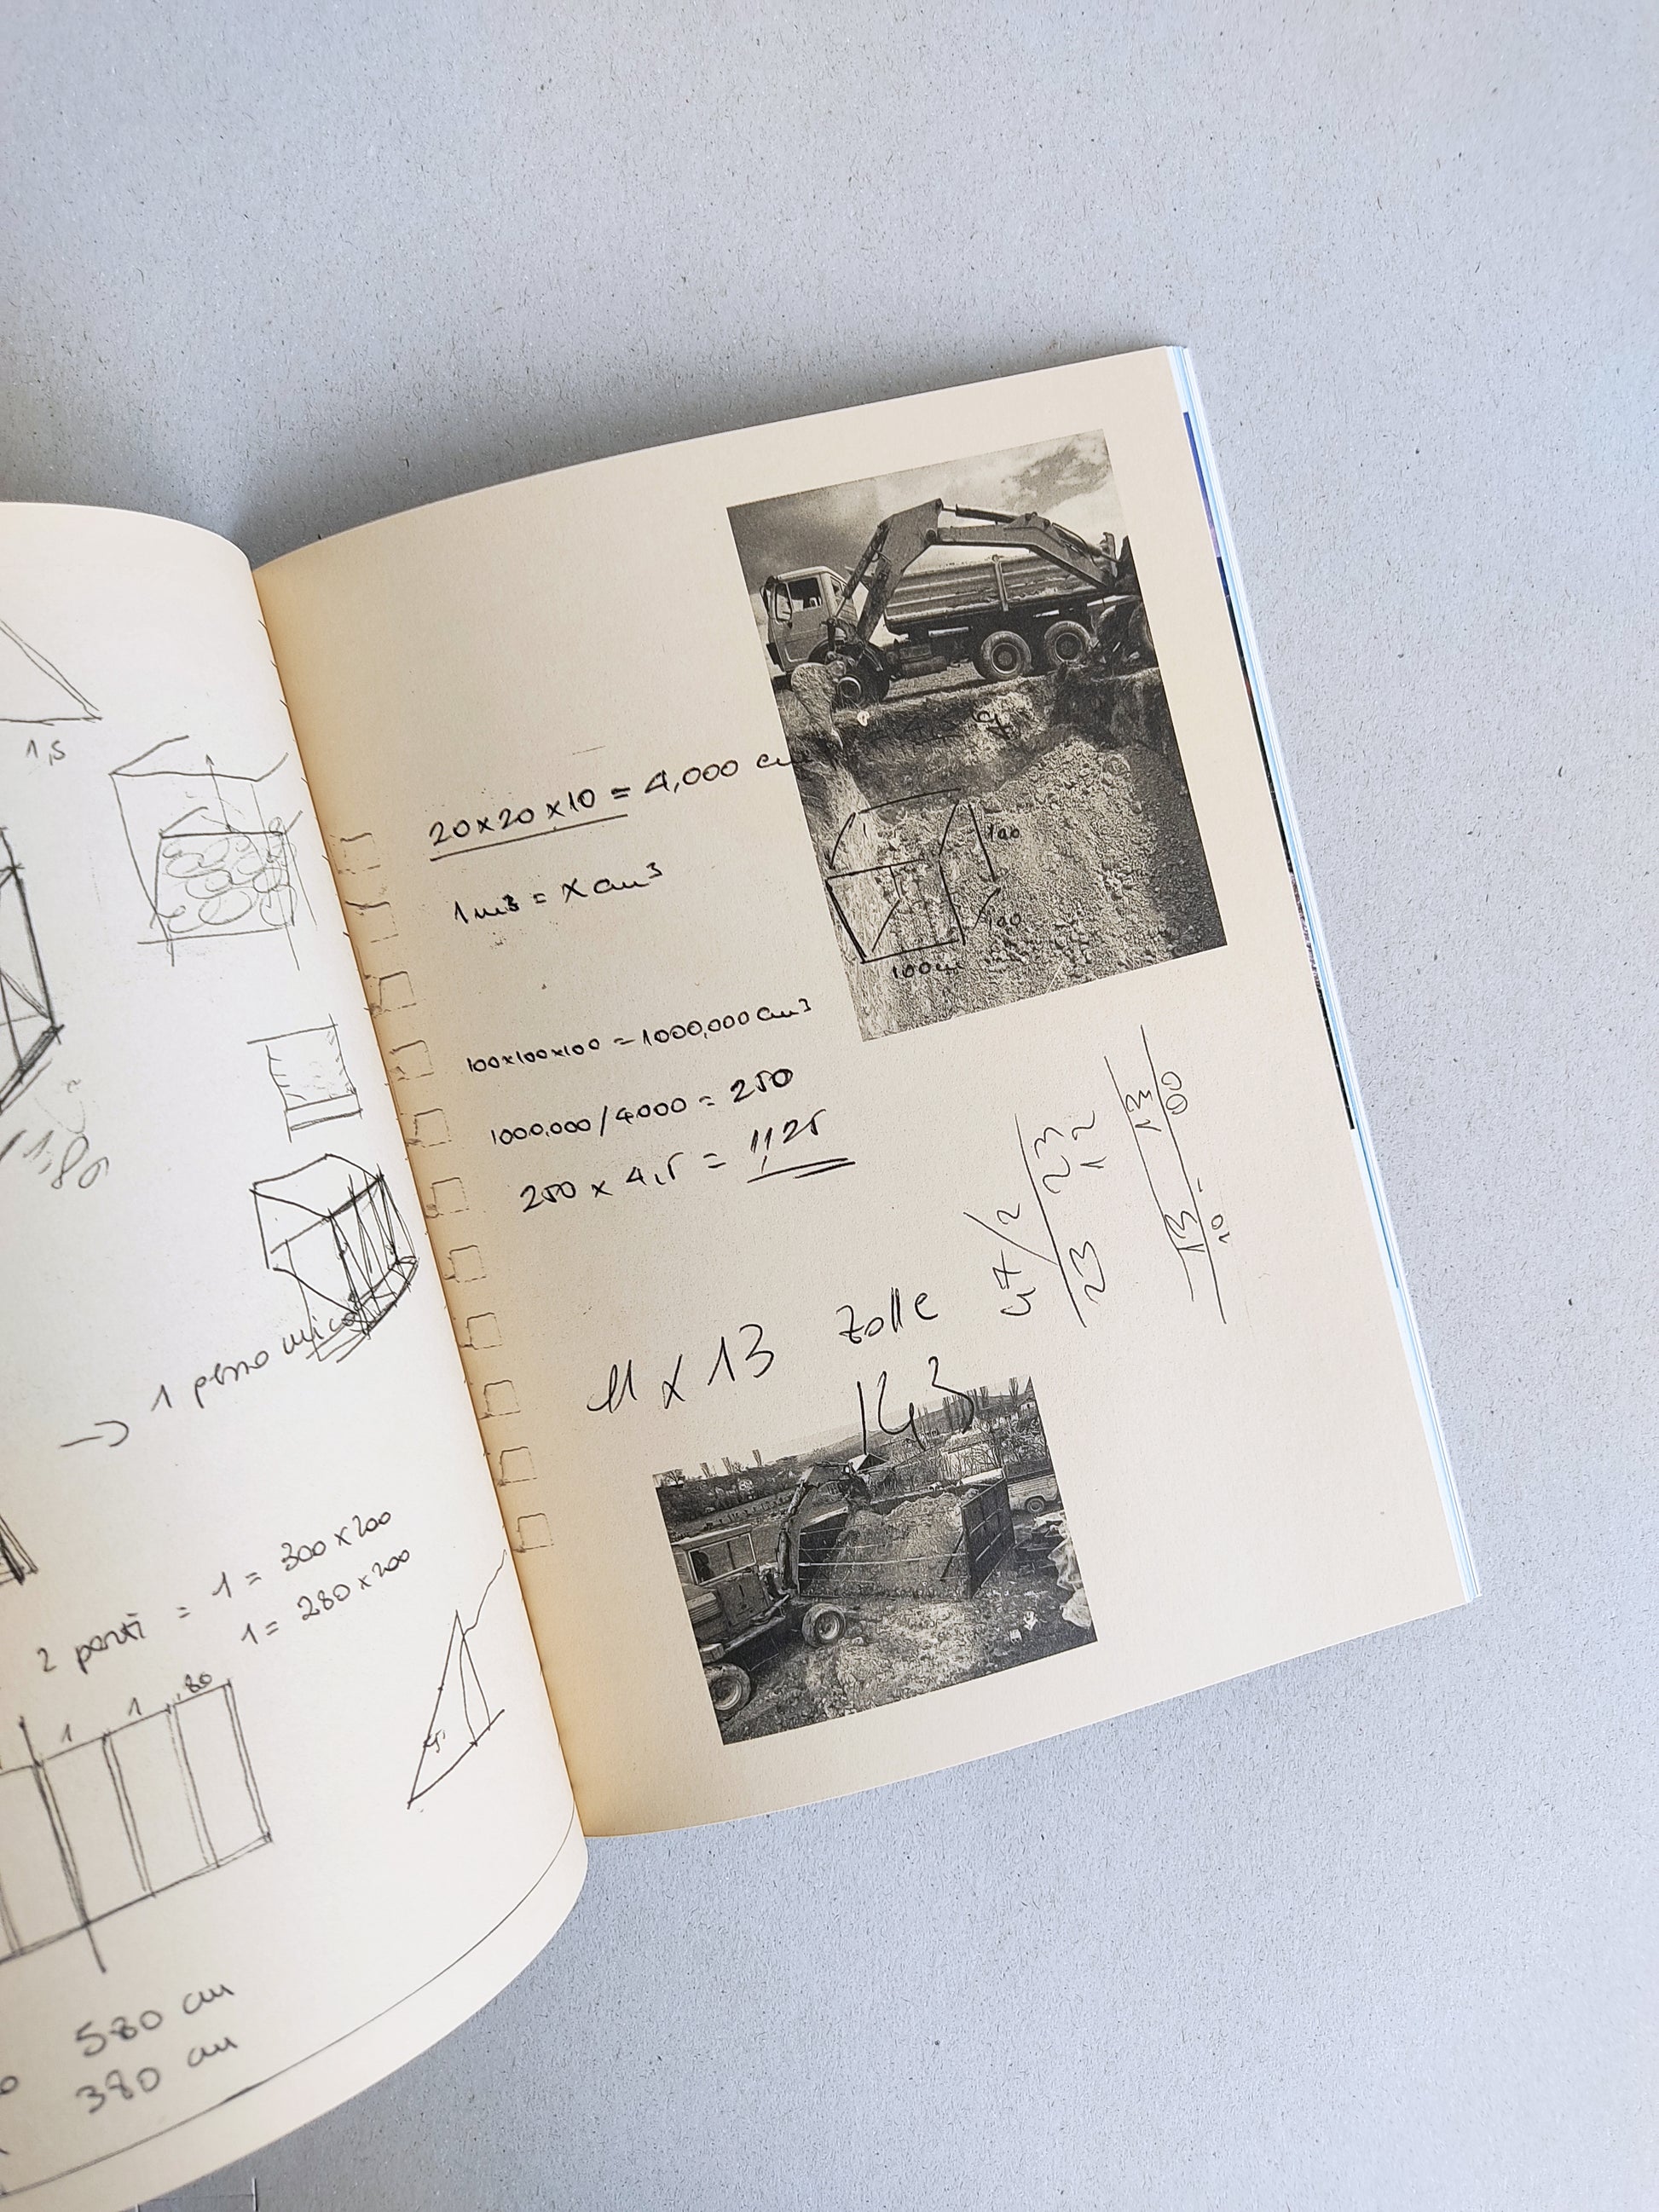 1,5
1,80
→ 1 pleno mica
2 parti = 1 = 300 x 200
1 = 280 x 200
1
1
80
580 cm
380 cm
20x20x10 = 4,000 cm
1m3 = x cm3
100
100
100cm
100x100x100 = 1000,000 cm3
1000.000/4000 = 250
250 x 4,5 = 1,125
47/2
23
23
12
13
10
13
00
11 x 13 Zolle
143